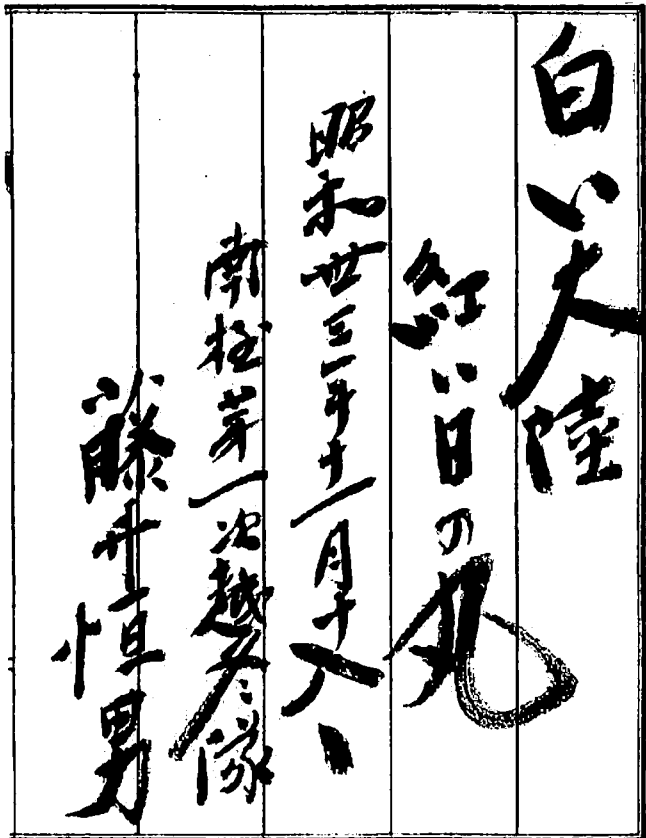 白い大陸
紅い日の丸
昭和卅三年十一月十八日
南極第一次越冬隊
藤井恒男